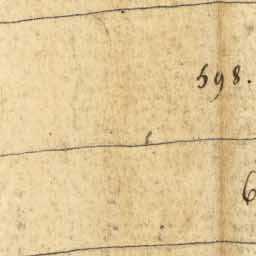 598.
6